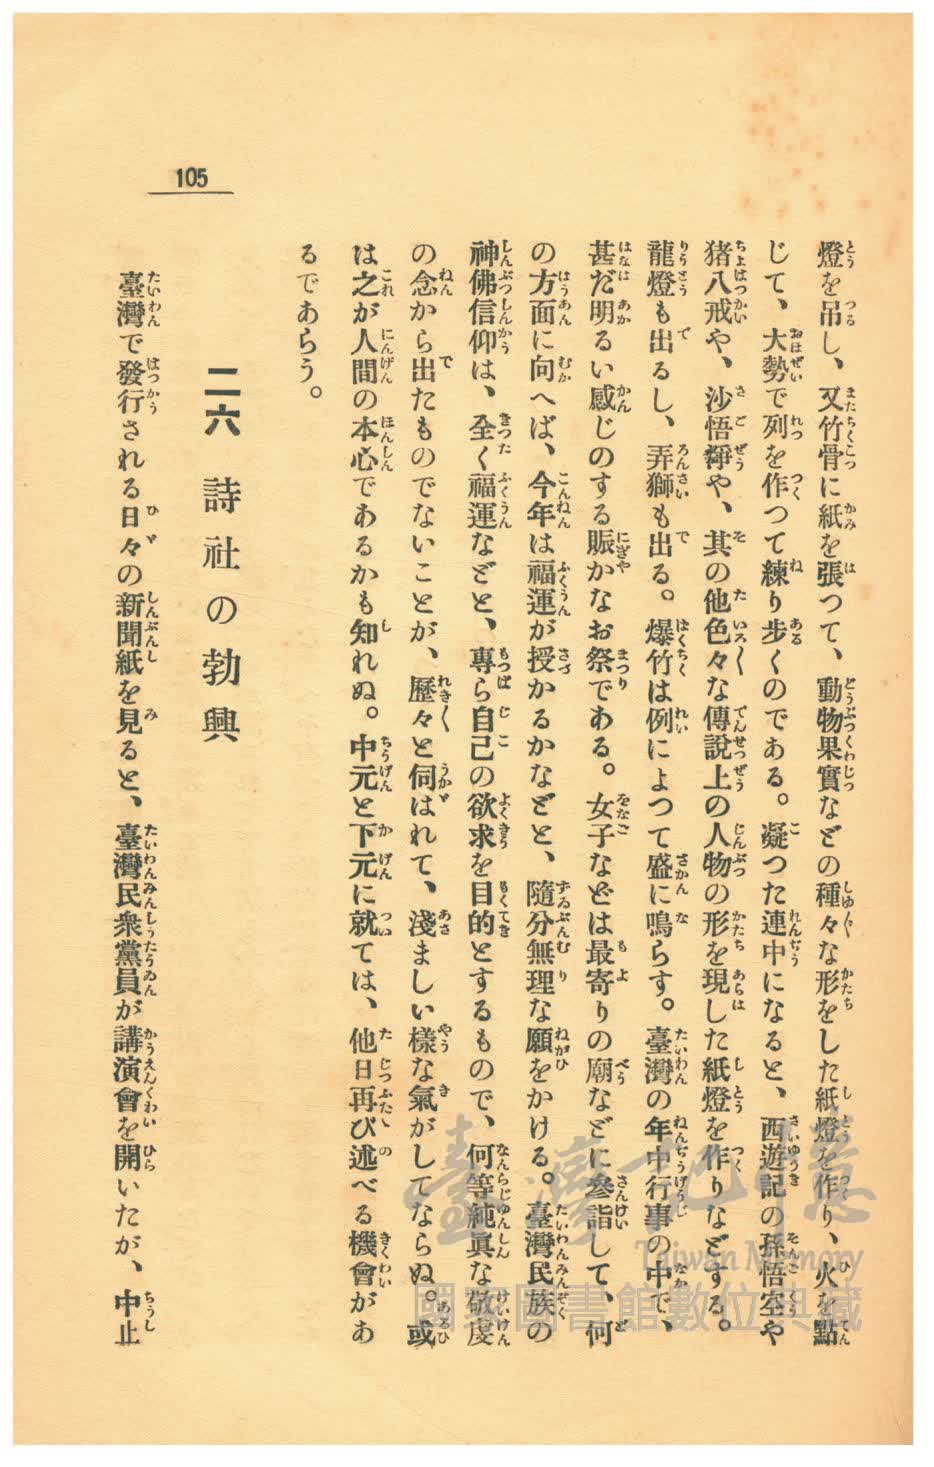 105
燈を吊し、又竹骨に紙を張つて、動物果實などの種々な形をした紙燈を作り、火を點
じて、大勢で列を作つて練り步くのである。凝つた連中になると、西遊記の孫悟空や
猪八戒や、沙悟靜や、其の他色々な傳說上の人物の形を現した紙燈を作りなどする。
龍燈も出るし、弄獅も出る。爆竹は例によつて盛に鳴らす。臺灣の年中行事の中で、
甚だ明るい感じのする賑かなお祭である。女子などは最寄りの廟などに參詣して、何
の方面に向へば、今年は福運が授かるかなどと、隨分無理な願をかける。臺灣民族の
神佛信仰は、全く福運などと、專ら自己の欲求を目的とするもので、何等純眞な敬虔
の念から出たものでないことが、歷々と伺はれて、淺ましい樣な氣がしてならぬ。或
は之が人間の本心であるかも知れぬ。中元と下元に就ては、他日再び述べる機會があ
るであらう。
二六 詩社の勃興
臺灣で發行される日々の新聞紙を見ると、臺灣民衆黨員が講演會を開いたが、中止
臺灣記憶
Taiwan Memory
國家圖書館數位典藏